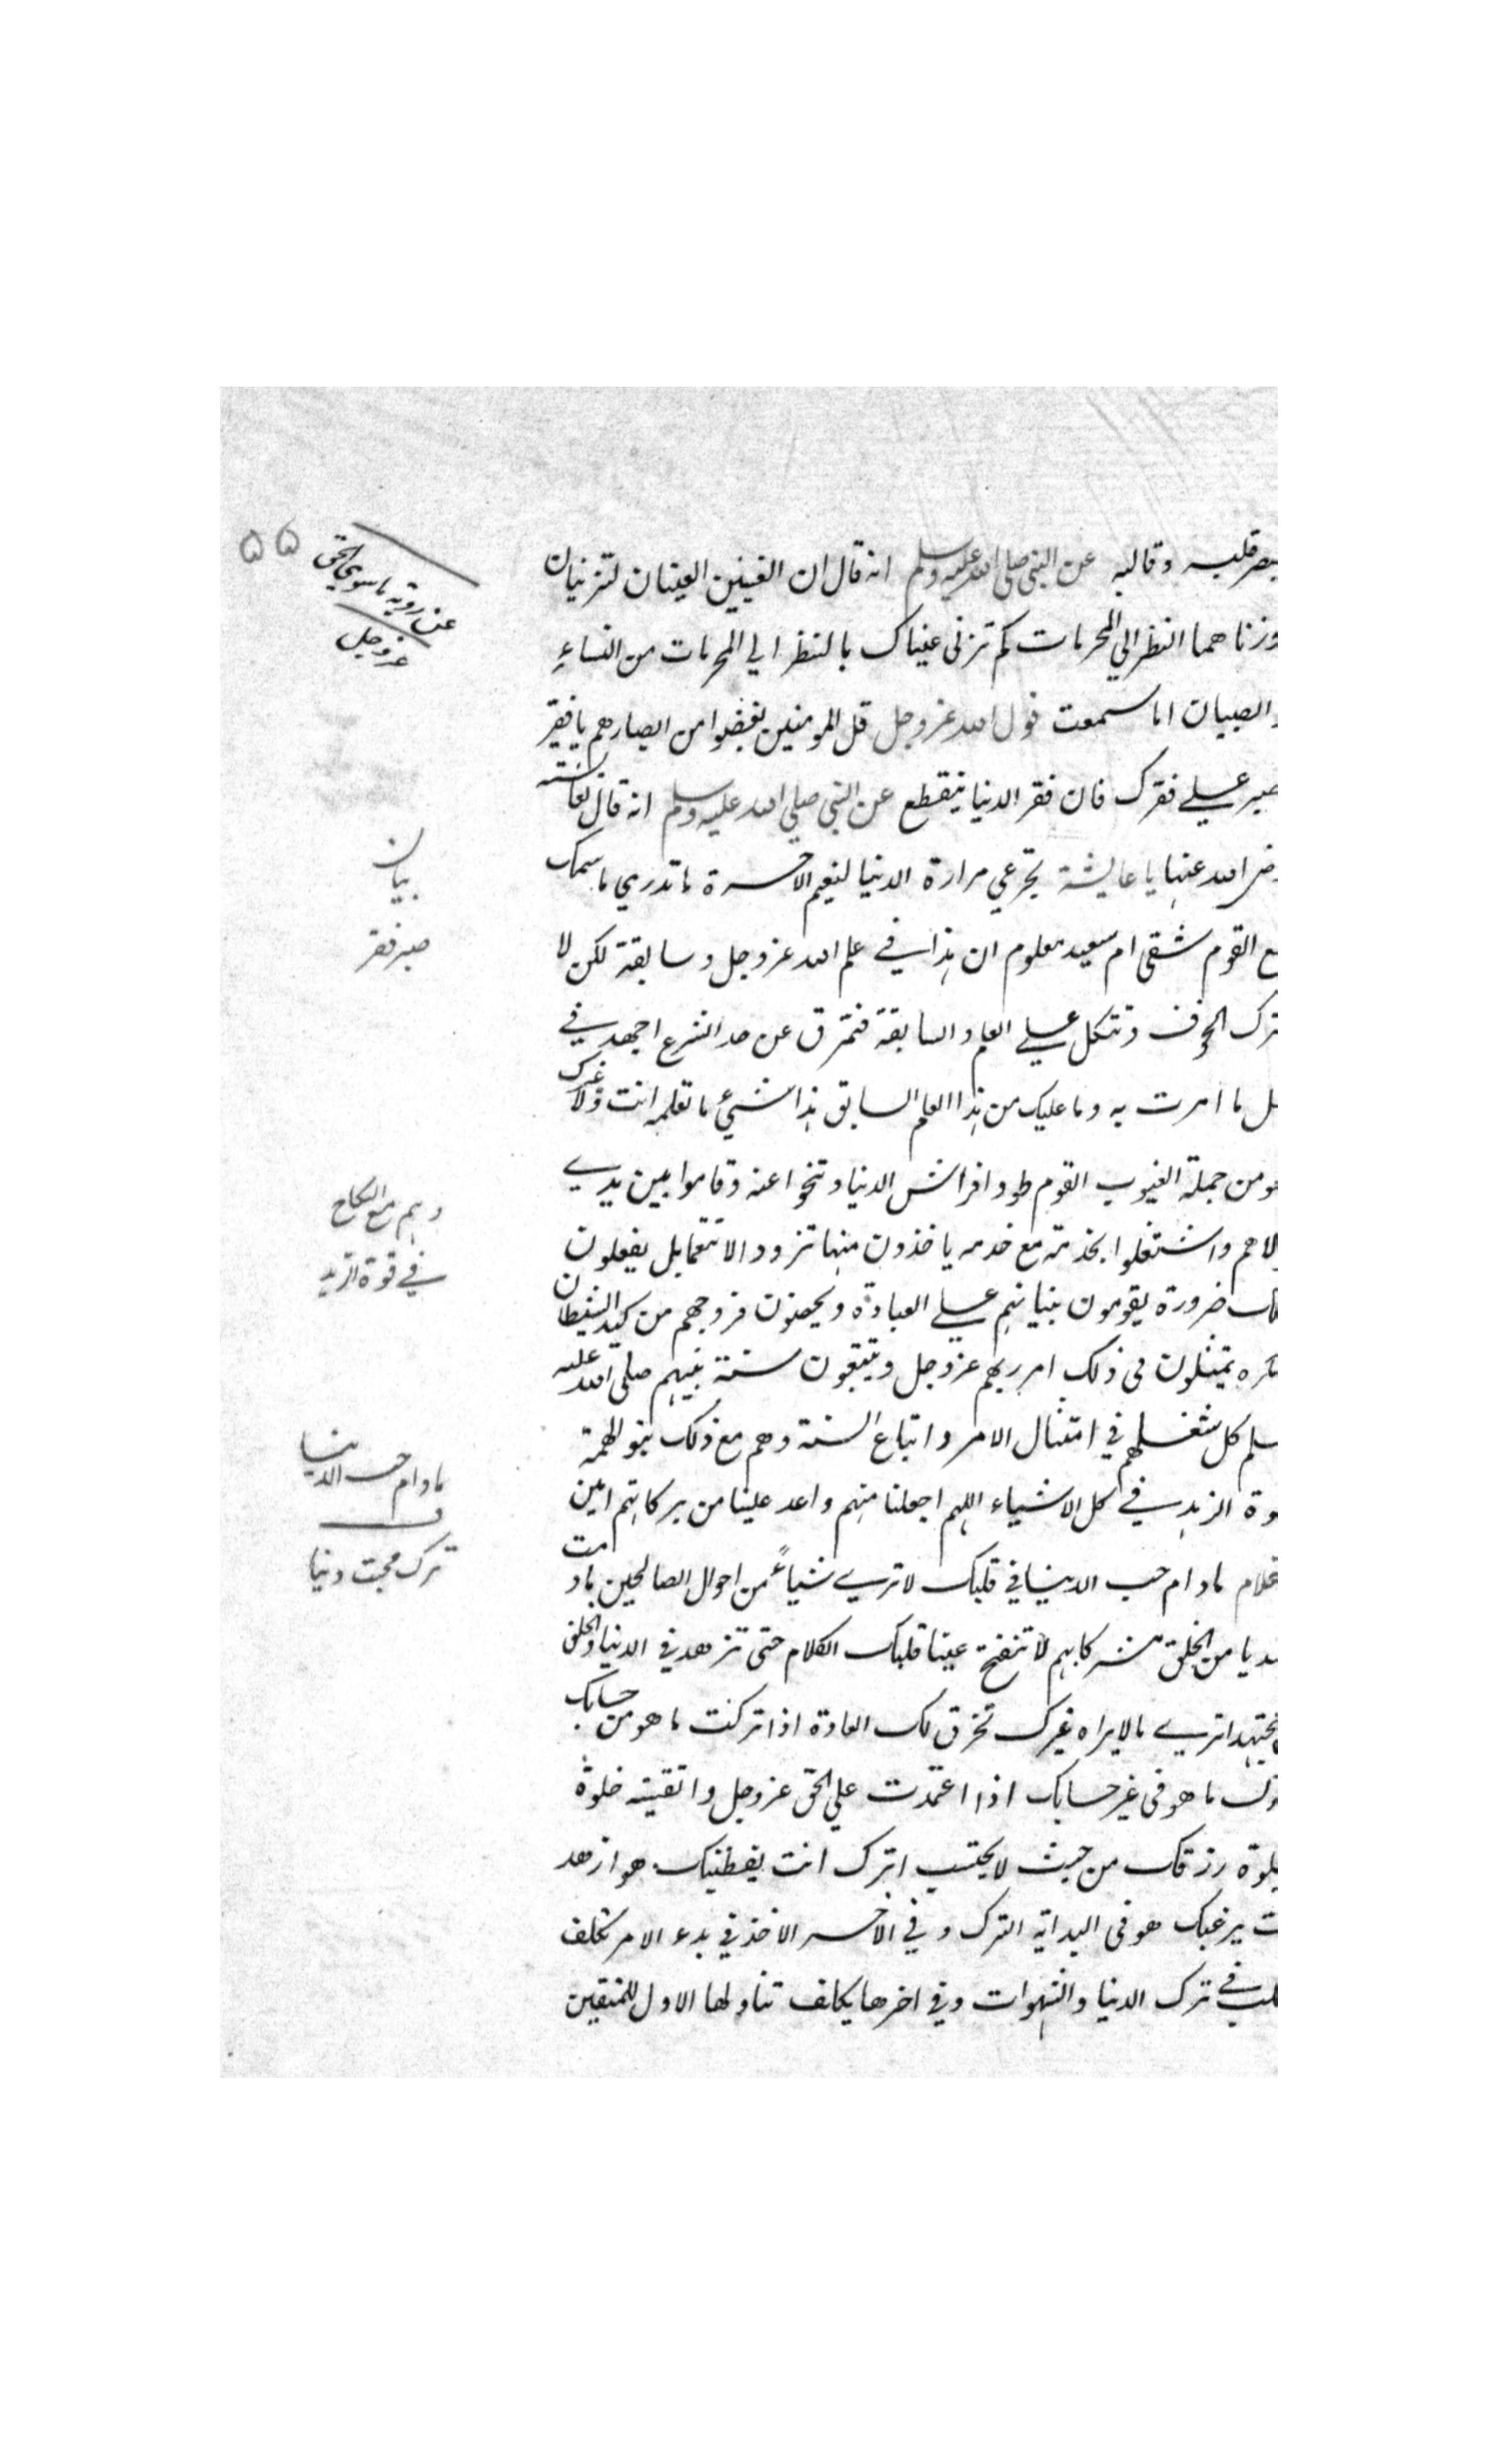 بصر قلبه وقالبه عن النبي صلى الله عليه وسلم انه قال ان العينين العينان لتزنيان
وزناهما النظر الي المحرمات كم تزنى عيناك بالنظر الي المحرمات من النساء
والصبيان اما سمعت قول الله عز وجل قل للمومنين يغضوا من ابصارهم يا فقير
صبر علي فقرك فان فقر الدنيا ينقطع عن النبي صلي الله عليه وسلم انه قال لعائشة
رضى الله عنها يا عايشة تجرعي مرارة الدنيا لنعيم الاخرة ما تدري ما سمك
مع القوم شقى ام سعيد معلوم ان هذا في علم الله عز وجل وسابقة لكن لا
ترك الخوف وتتكل علي العلم والسابقة فتمرق عن حد الشرع اجهد في
ما امرت به وما عليك من هذا العلم السابق هذا شيء ما تعلمه انت ولا غيرك
هو من جملة الغيوب القوم طووا فراش الدنيا وتنحوا عنه وقاموا بين يدي
مولاهم واشتغلوا بخدمته مع خدمه ياخذون منها تزودا لا تنعما بل يفعلون
ضرورة يقومون بنيانهم علي العبادة ويحصنون فروجهم من كيد الشيطان
يمتثلون في ذلك امر ربهم عز وجل ويتبعون سنة نبيهم صلى الله عليه
وسلم كل شغلهم في امتثال الامر واتباع السنة وهم مع ذلك بنو الهمة
قوة الزهد في كل الاشياء اللهم اجعلنا منهم واعد علينا من بركاتهم امين
غلام مادام حب الدنيا في قلبك لا تري شياءً من احوال الصالحين مادمت
من الخلق مشركا بهم لا تنفتح عينا قلبك الكلام حتى تزهد في الدنيا والخلق
مجتهدا تري ما لا يراه غيرك تخرق لك العادة اذا تركت ما هو من حسابك
ما هو في غير حسابك اذا اعتمدت علي الحق عز وجل واتقيته خلوة
رزقك من حيث لا يحتسب اترك انت يعطيك هو ازهد
انت يرغبك هو في البداية الترك وفي الاخر الاخذ في بدء الامر تكلف
القلب في ترك الدنيا والشهوات وفي اخرها يكلف تناولها الاول للمتقين
۵۵
عن روية ما سوى الحق
عز وجل
بيان
صبر فقر
وهم مع النكاح
في قوة الزهد
مادام حب الدنيا
ف
ترك محبت دنيا